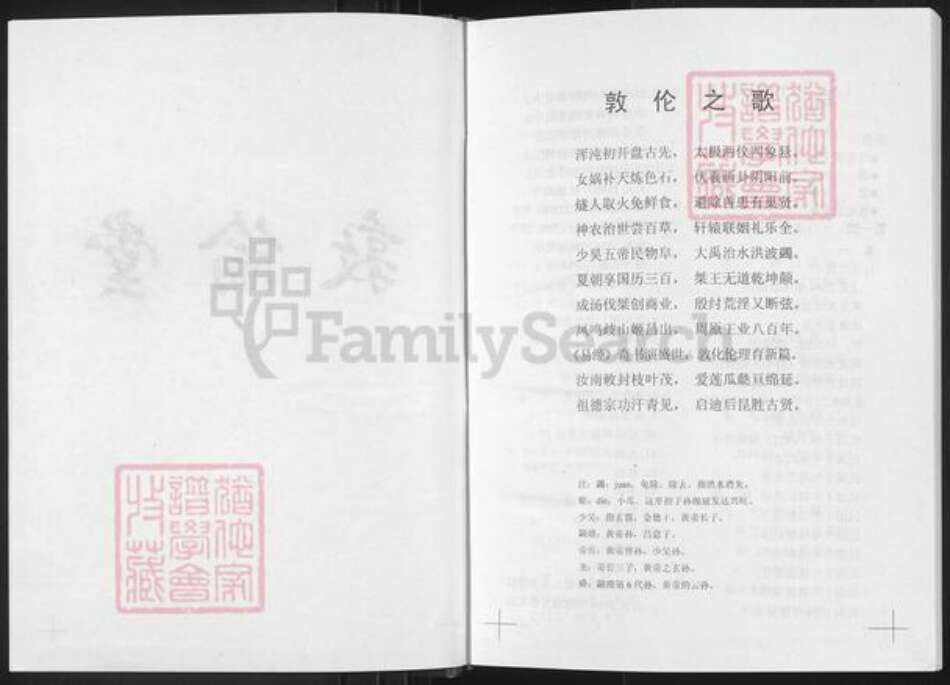 敦伦之歌
浑沌初开盘古先， 太极两仪四象悬。
女娲补天炼色石， 伏羲画卦阴阳前。
燧人取火免鲜食， 避除兽患有巢贤。
神农治世尝百草， 轩辕联姻礼乐全。
少昊五帝民物阜， 大禹治水洪波蠲。
夏朝享国历三百， 桀王无道乾坤颠。
成汤伐桀创商业， 殷纣荒淫又断弦。
凤鸣岐山姬昌出， 周原王业八百年。
奇书演盛世，敦化伦理有新篇。
汝南敕封枝叶茂， 爱莲瓜瓞亘绵延。
祖德宗功汗青见， 启迪后昆胜古贤。
注：蠲：juan，免除，除去，指洪水消失。
瓞：die，小瓜，这里指子孙
少昊：指玄嚣，黄帝长子。
颛顼：黄帝孙，昌意子。
帝喾：黄帝曾孙，少昊孙。
尧：帝喾三子，黄帝之玄孙。
舜：颛顼第6代孙，黄帝的云孙。
FamilySearch
谱学会
收藏